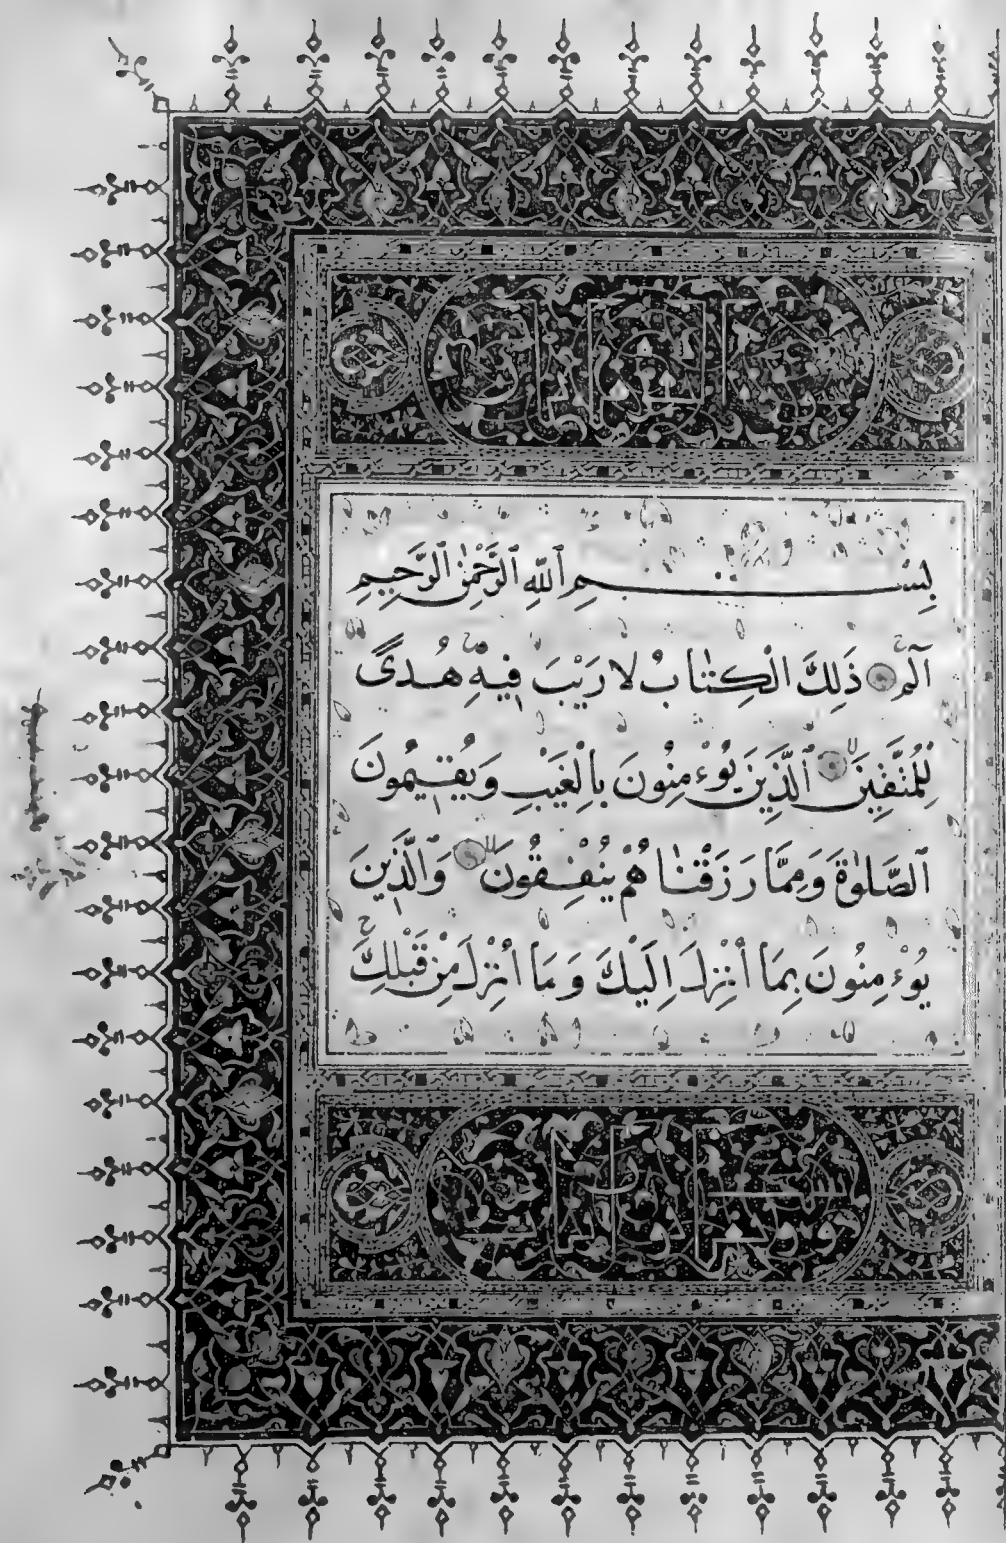 بِسْمِ ٱللَّهِ ٱلرَّحْمٰنِ ٱلرَّحِيمِ
آلٓمٓ ذَلِكَ الْكِتٰابُ لا رَيْبَ فِيهِ هُدىً
لِلْمُتَّقِينَ ٱلَّذِينَ يُوءْمِنُونَ بِالْغَيْبِ وَيُقِيمُونَ
ٱلصَّلوٰةَ وَمِمَّا رَزَقْنٰاهُمْ يُنْفِقُونَ وَٱلَّذِينَ
يُوءْمِنُونَ بِمَا أُنْزِلَ اِلَيْكَ وَمَا أُنْزِلَ مِنْ قَبْلِكَ